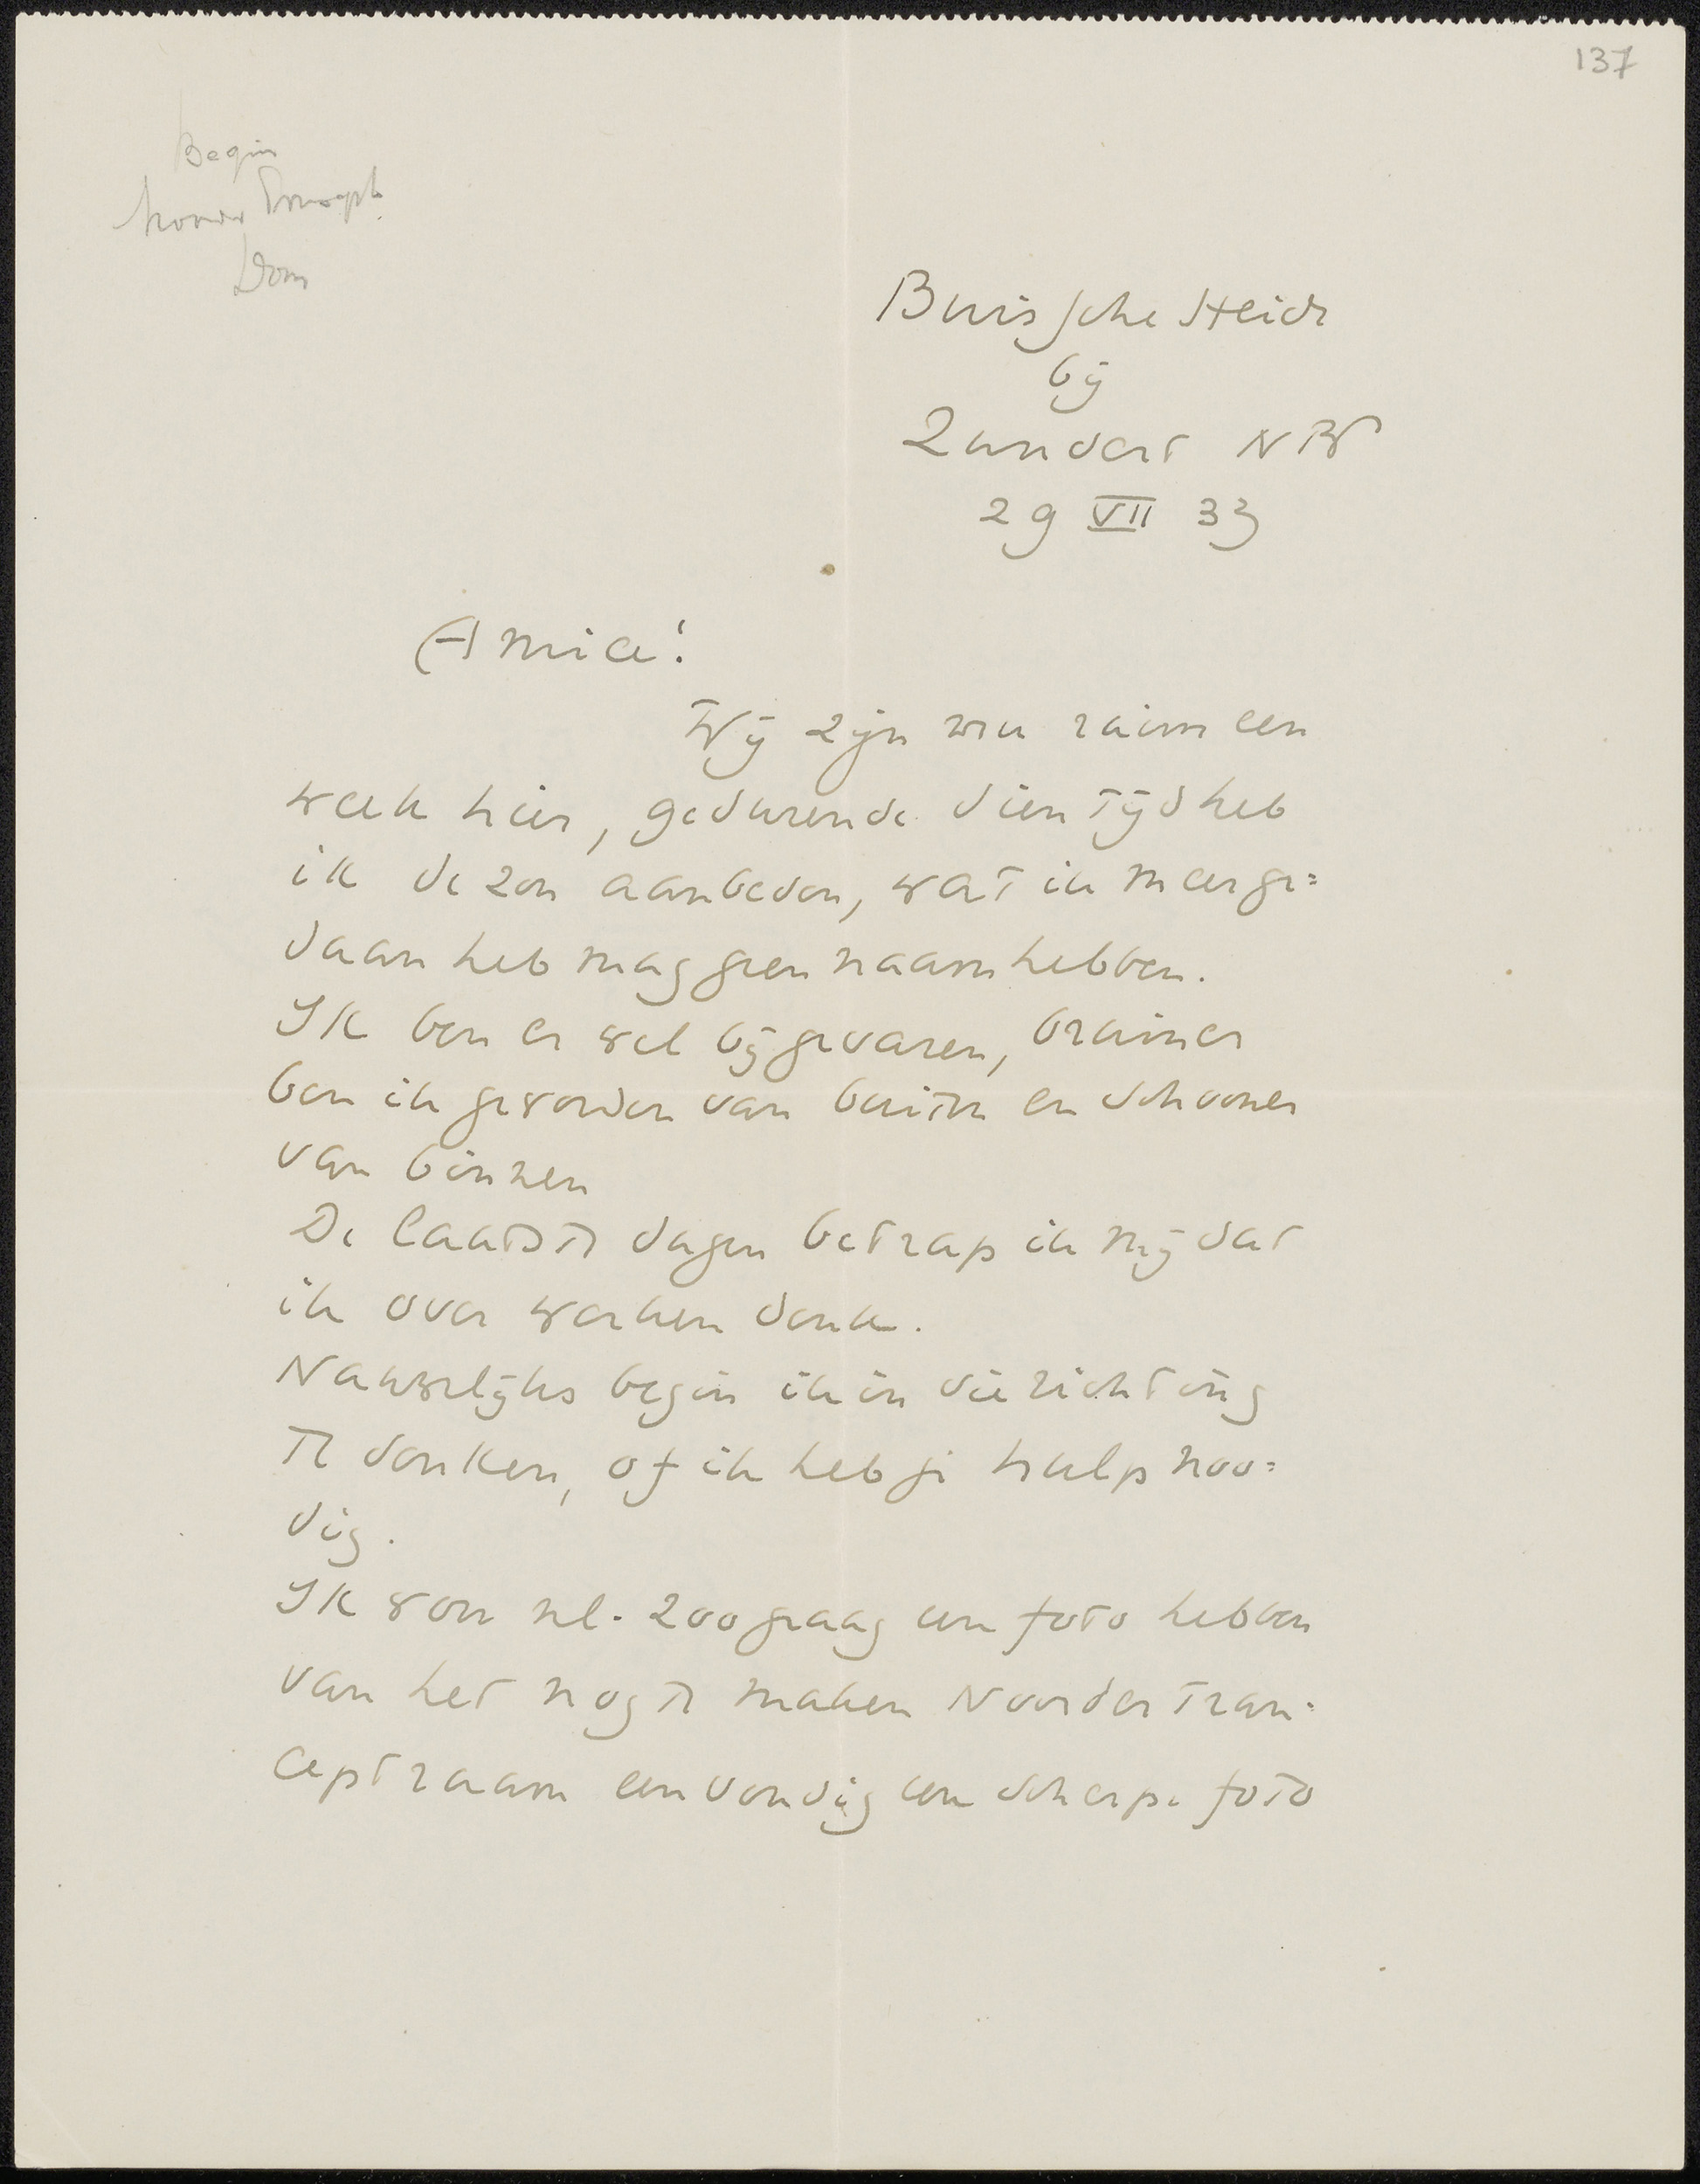 137
Begin
Noorder Transept
Dom
Buissche Heide
bij
Zundert NB
29 VII 33
Amice!
Wij zijn nu ruim een
week hier, gedurende dien tijd heb
ik de zon aanbeden, wat ik meer ge=
daan heb mag geen naam hebben.
Ik ben er wel bij gevaren, bruiner
ben ik geworden van buiten en schooner
van binnen
De laatste dagen betrap ik mij dat
ik over werken denk.
Nauwelijks begin ik in die richting
te denken, of ik heb je hulp noo=
dig.
Ik wou nl. zoo graag een foto hebben
van het nog te maken Noorder tran=
ceptraam eenvoudig een scherpe foto